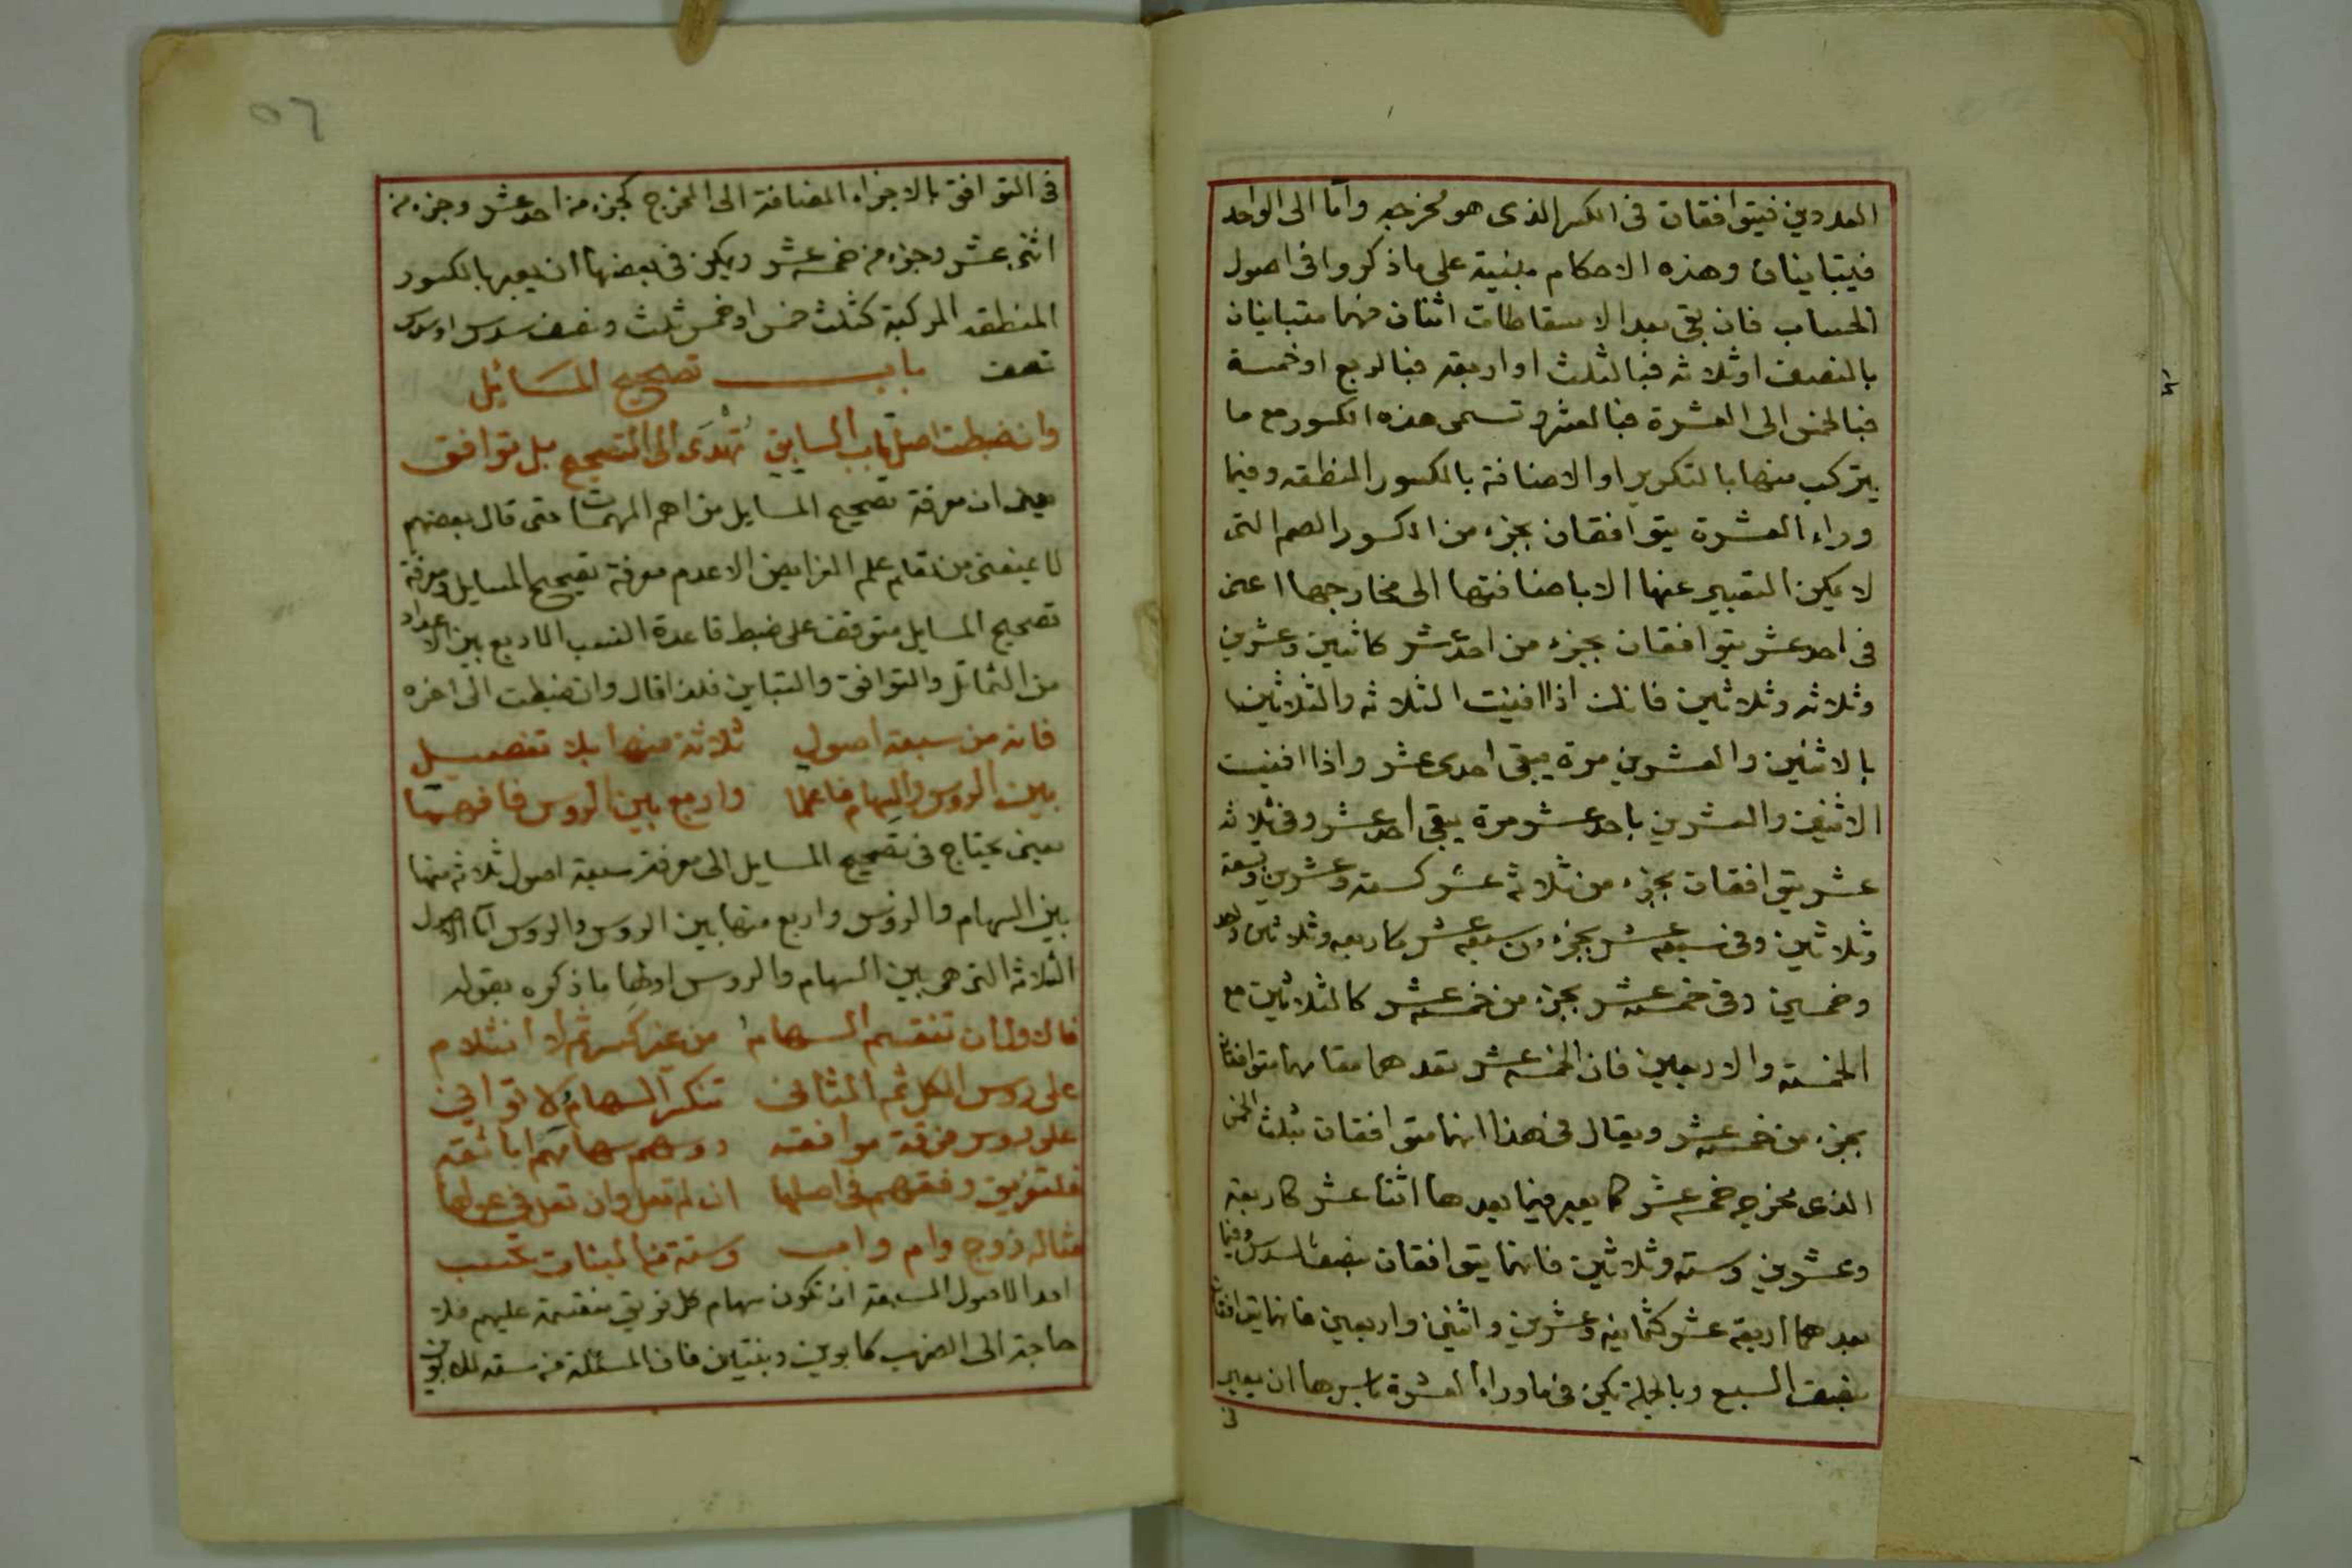 العددين فيتوافقان فى الكسر الذى هو مخرجه واما الى الواحد
فيتباينان وهذه الاحكام مبنية على ما ذكروا فى اصول
الحساب فان بقى بعد الاسقاطات اثنان فهما متباينان
بالنصف او ثلاثه فبالثلث او اربعه فبالربع او خمسة
فبالخمس الى العشرة فبالعشر وتسمى هذه الكسور مع ما
يتركب منها بالتكرير او الاضافة بالكسور المنطقه وفيما
وراء العشرة يتوافقان بجزء من الكسور الصم التى
لا يمكن التعبير عنها الا باضافتها الى مخارجها اعنى
فى احد عشر يتوافقان بجزء من احد عشر كاثنين وعشرين
وثلاثه وثلاثين فانك اذا افنيت الثلاثه والثلاثين
بالاثنين والعشرين مرة يبقى احدى عشر واذا افنيت
الاثنين والعشرين باحد عشر مرة يبقى احد عشر وفى ثلاثه
عشر يتوافقان بجزء من ثلاثة عشر كستة وعشرين وتسعة
وثلاثين وفى سبعه عشر بجزء من سبعه عشر كاربعه وثلاثين واحد
وخمسين وفى خمسة عشر بجزء من خمسة عشر كالثلاثين مع
الخمسة والاربعين فان الخمسه عشر تعدهما معا فهما متوافقان
بجزء من خمسة عشر ويقال فى هذا انهما متوافقان بثلث الخمس
الذى مخرجه خمسه عشر كما يعبر فيما يعدها اثنا عشر كاربعة
وعشرين وسته وثلاثين فانهما يتوافقان بنصف السدس وفيما
يعدهما اربعة عشر كثمانيه وعشرين واثنين واربعين فانهما يتوافقان
بنصف السبع وبالجملة يمكن فى ما وراء العشرة باسرها ان يعبر
فى
٥٦
فى التوافق بالاجزاء المضافة الى المخرج كجزء من احد عشر وجزء من
اثنى عشر وجزء من خمسه عشر ويمكن فى بعضها ان يعبر بالكسور
المنطقه المركبة كثلث خمس او خمس ثلث ونصف سدس او سدس
نصف باب تصحيح المسائل
وان ضبطت اصل باب السابق تهدى الى التصحيح بل توافق
يعنى ان معرفة تصحيح المسايل من اهم المهمات حتى قال بعضهم
علم الفرايض الا عدم معرفة تصحيح المسايل ومعرفة
تصحيح المسايل متوقف على ضبط قاعدة النسب الاربع بين الاعداد
من التماثل والتوافق والتباين فلذا قال وان ضبطت الى اخره
فانه من سبعة اصول ثلاثة منها بلا تفصيل
بين الروس والسهام فاعلما واربع بين الروس فافهما
يعنى يحتاج فى تصحيح المسايل الى معرفة سبعة اصول ثلاثه منها
بين السهام والرؤس واربع منها بين الروس والروس اما الاصول
الثلاثه التى هى بين السهام والروس اولها ما ذكره بقوله
فالاول ان تنقسم السهام من غير كسر ثم لا انثلام
على روس الكل ثم الثانى تنكسر السهام لا توانى
على روس فرقة موافقه روسهم سهامهم
وفقهم فى اصلها ان لم تعل وان تعل فى عولها
مثاله زوج وام واب وستة من البنات تحسب
احد الاصول السبعة ان تكون سهام كل فريق منقسمة عليهم فلا
حاجة الى الضرب كابوين وبنتين فان المسئلة من سته للابوين